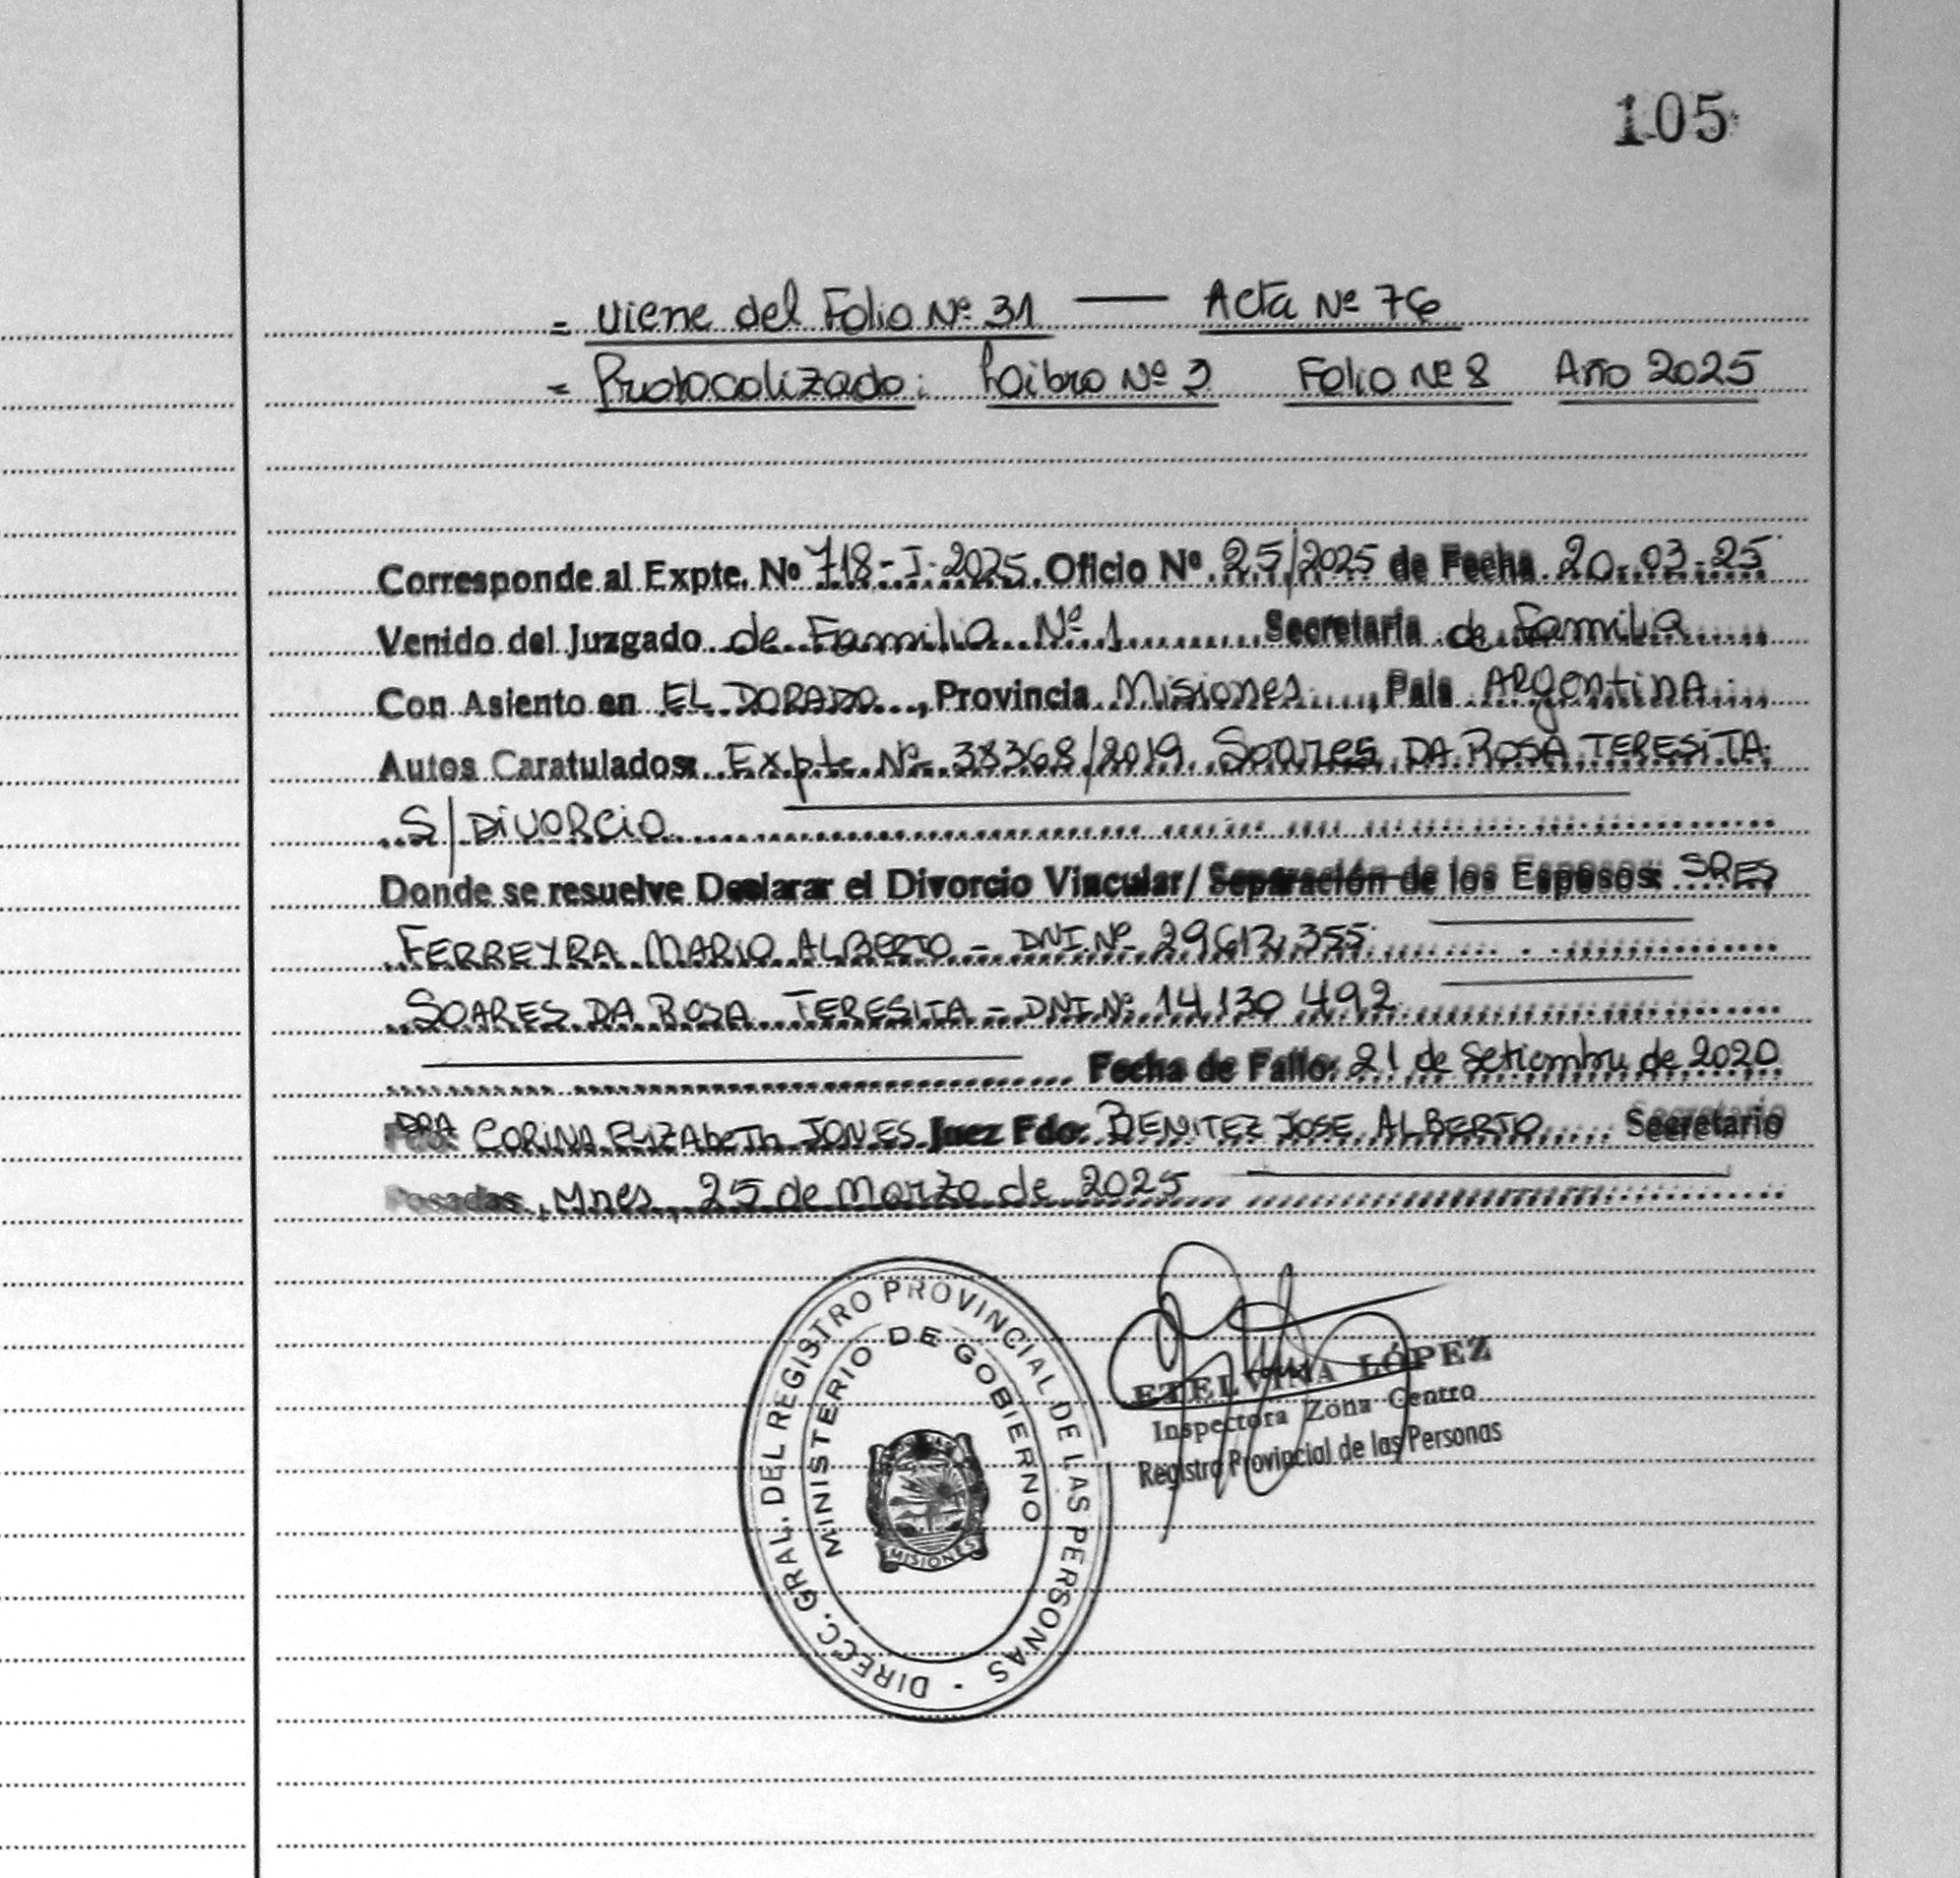 105
= Viene del Folio Nº 31 — Acta Nº 76
= Protocolizado: Libro Nº 3 Folio Nº 8 Año 2025
Corresponde al Expte. Nº 718-I-2025. Oficio Nº 25/2025 de Fecha 20-03-25
Venido del Juzgado de Familia Nº 1 Secretaria de Familia
Con Asiento en EL DORADO, Provincia Misiones, Pais ARgentinA
Autos Caratulados: Expte Nº 38368/2019 Soares DA ROSA TERESITA
S/ DIVORCIO
Donde se resuelve Declarar el Divorcio Vincular/ Separación de los Esposos: SRES
FERREYRA MARIO ALBERTO - DNI Nº 29.612.355
SOARES DA ROSA TERESITA - DNI Nº 14.130.492
Fecha de Fallo: 21 de Setiembre de 2020
DRA CORINA ELIZAbeTh JONES Juez Fdo: BENITEZ JOSE ALBERTO Secretario
Posadas, Mnes, 25 de Marzo de 2025
DIRECC. GRAL. DEL REGISTRO PROVINCIAL DE LAS PERSONAS
MINISTERIO DE GOBIERNO
MISIONES
ETELVINA LÓPEZ
Inspectora Zona Centro
Registro Provincial de las Personas